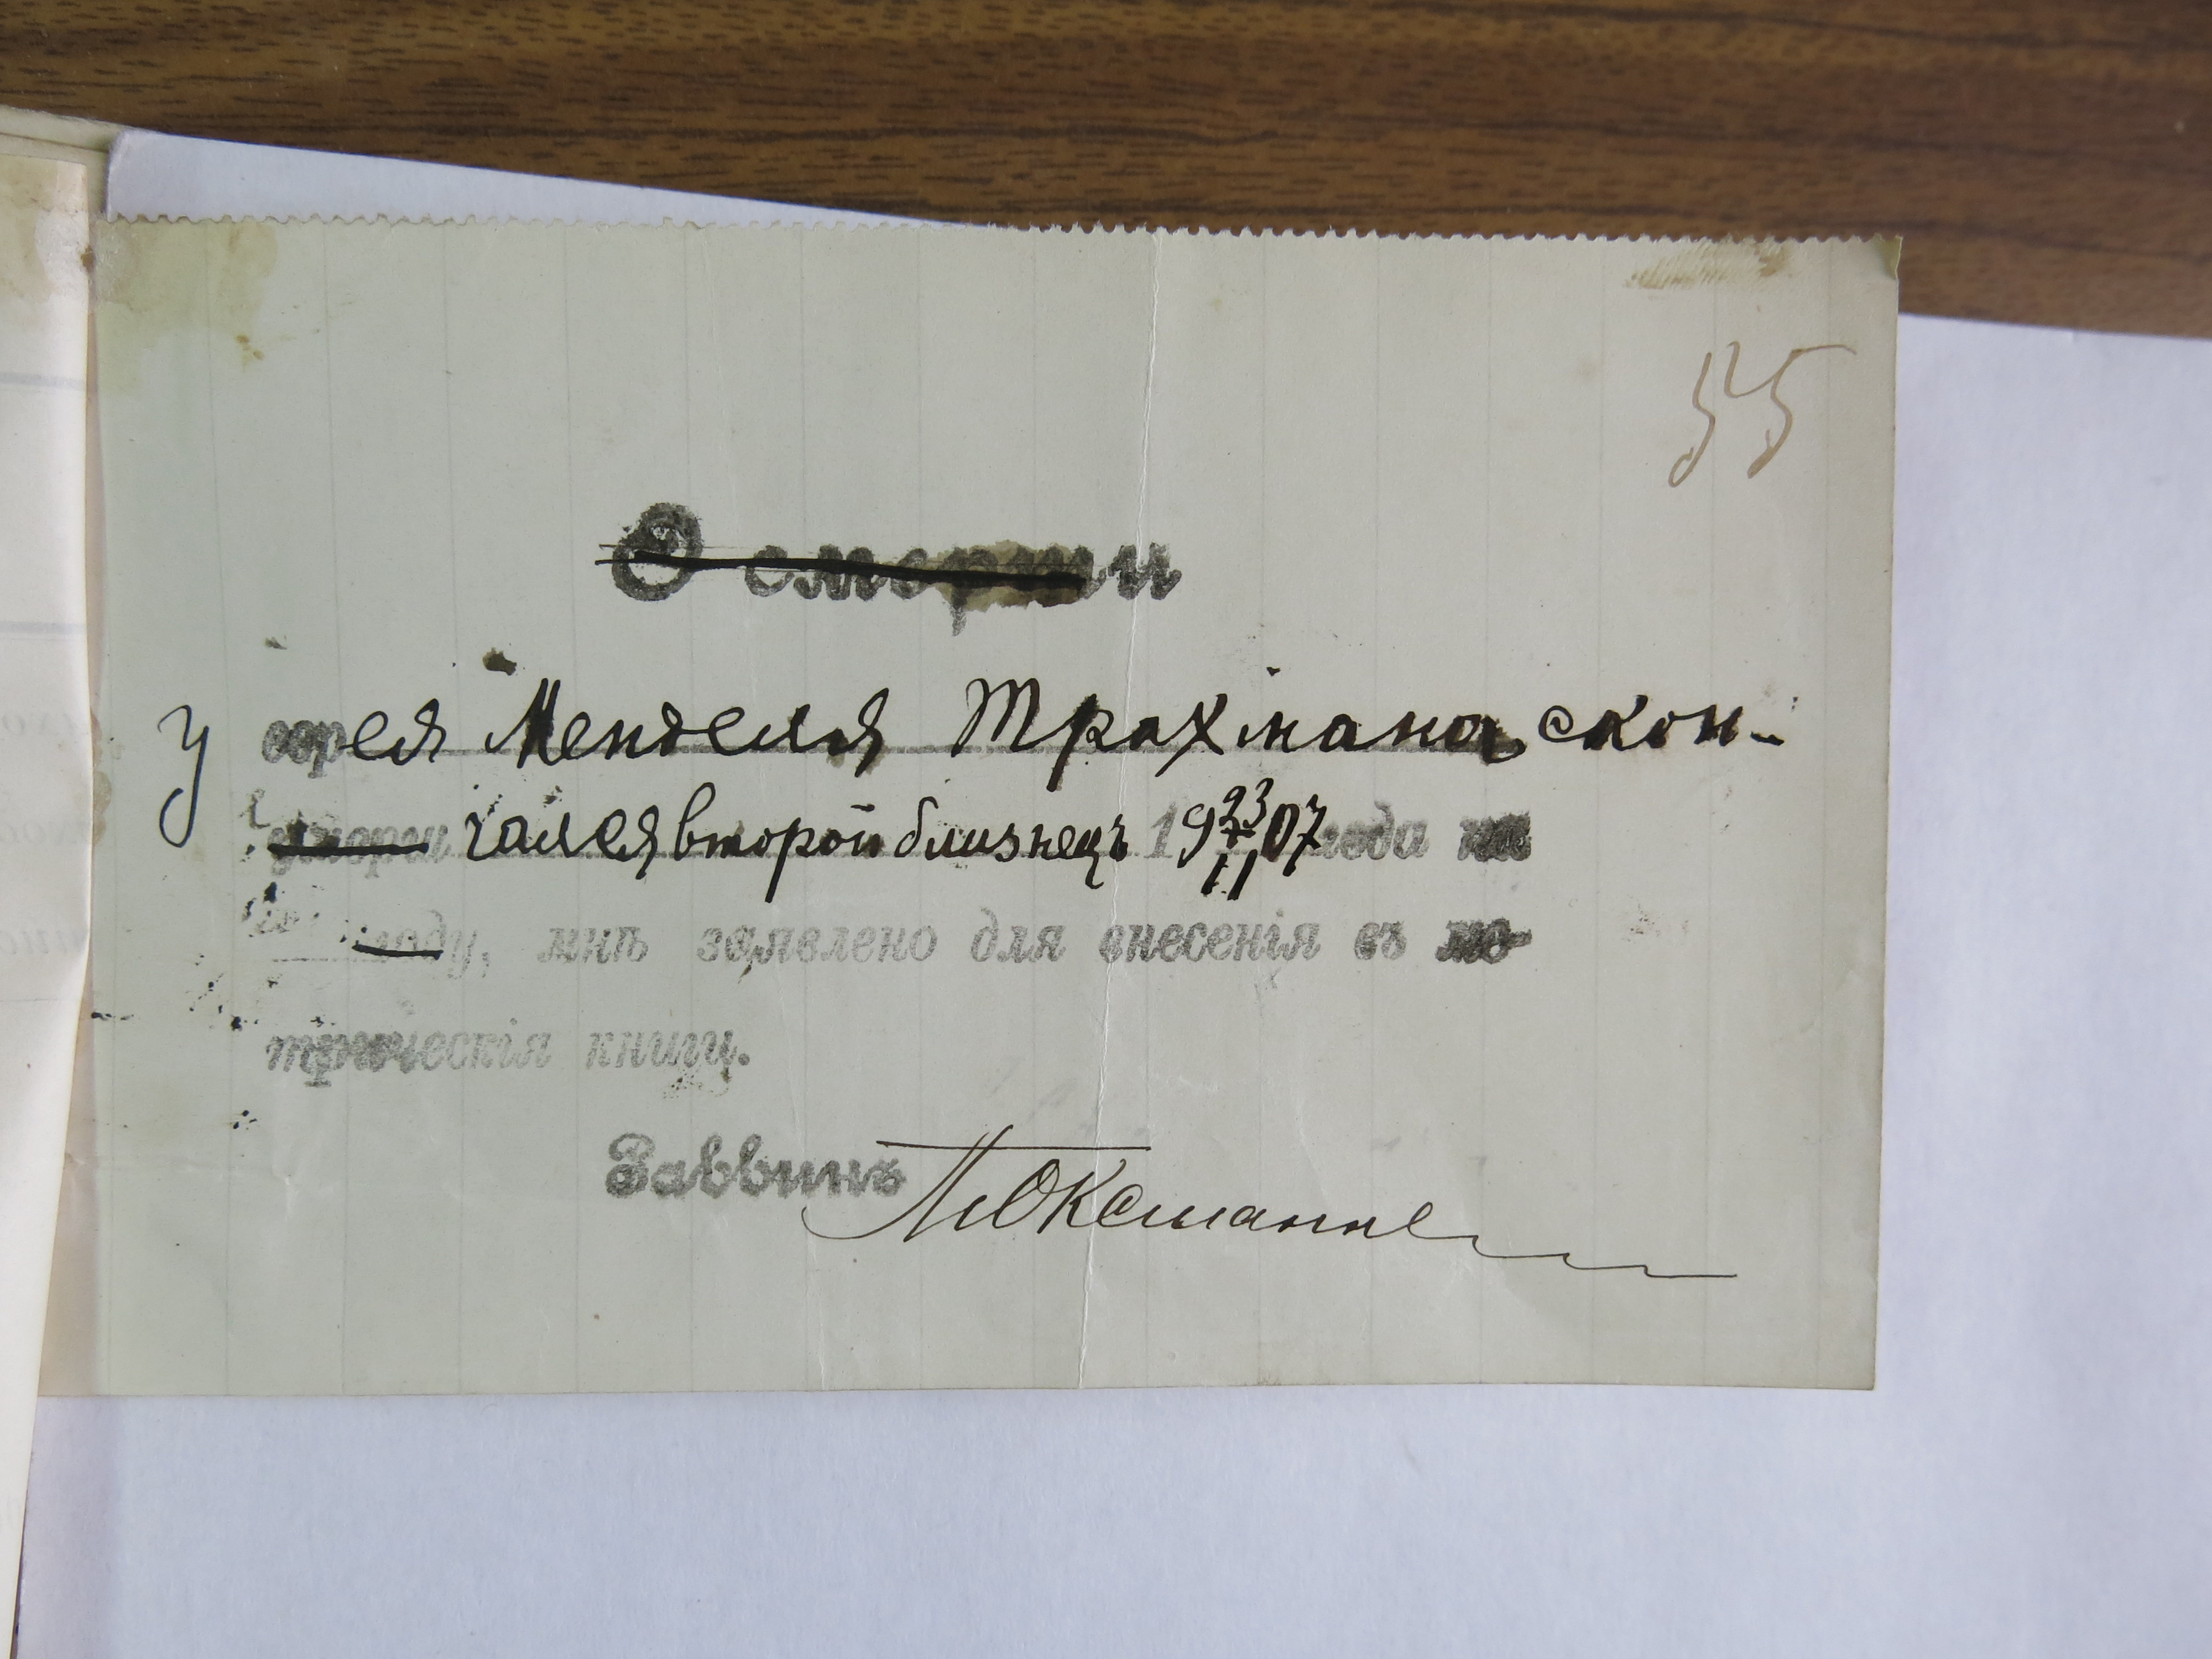 55
О смерти
У еврея Менделя Трахтмана скон-
умерш чался второй близнецъ 19 23/II 07 года на
году, мнѣ заявлено для внесенія въ ме-
трическія книги.
Раввинъ